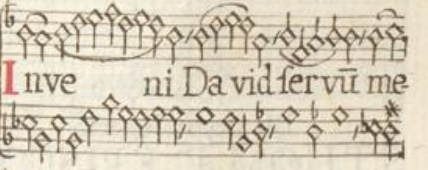 Inve ni David servū me-